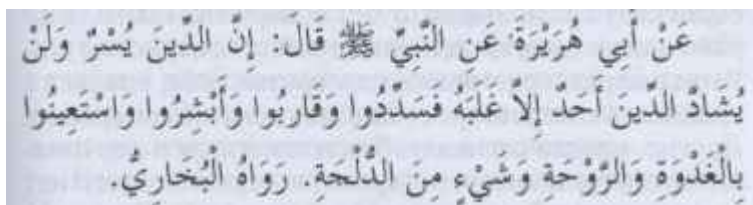 عَنْ أَبِي هُرَيْرَةَ عَنِ النَّبِيِّ ﷺ قَالَ: إِنَّ الدِّينَ يُسْرٌ وَلَنْ
يُشَادَّ الدِّينَ أَحَدٌ إِلاَّ غَلَبَهُ فَسَدِّدُوا وَقَارِبُوا وَأَبْشِرُوا وَاسْتَعِينُوا
بِالْغَدْوَةِ وَالرَّوْحَةِ وَشَيْءٍ مِنَ الدُّلْحَةِ. رَوَاهُ الْبُخَارِيُّ.